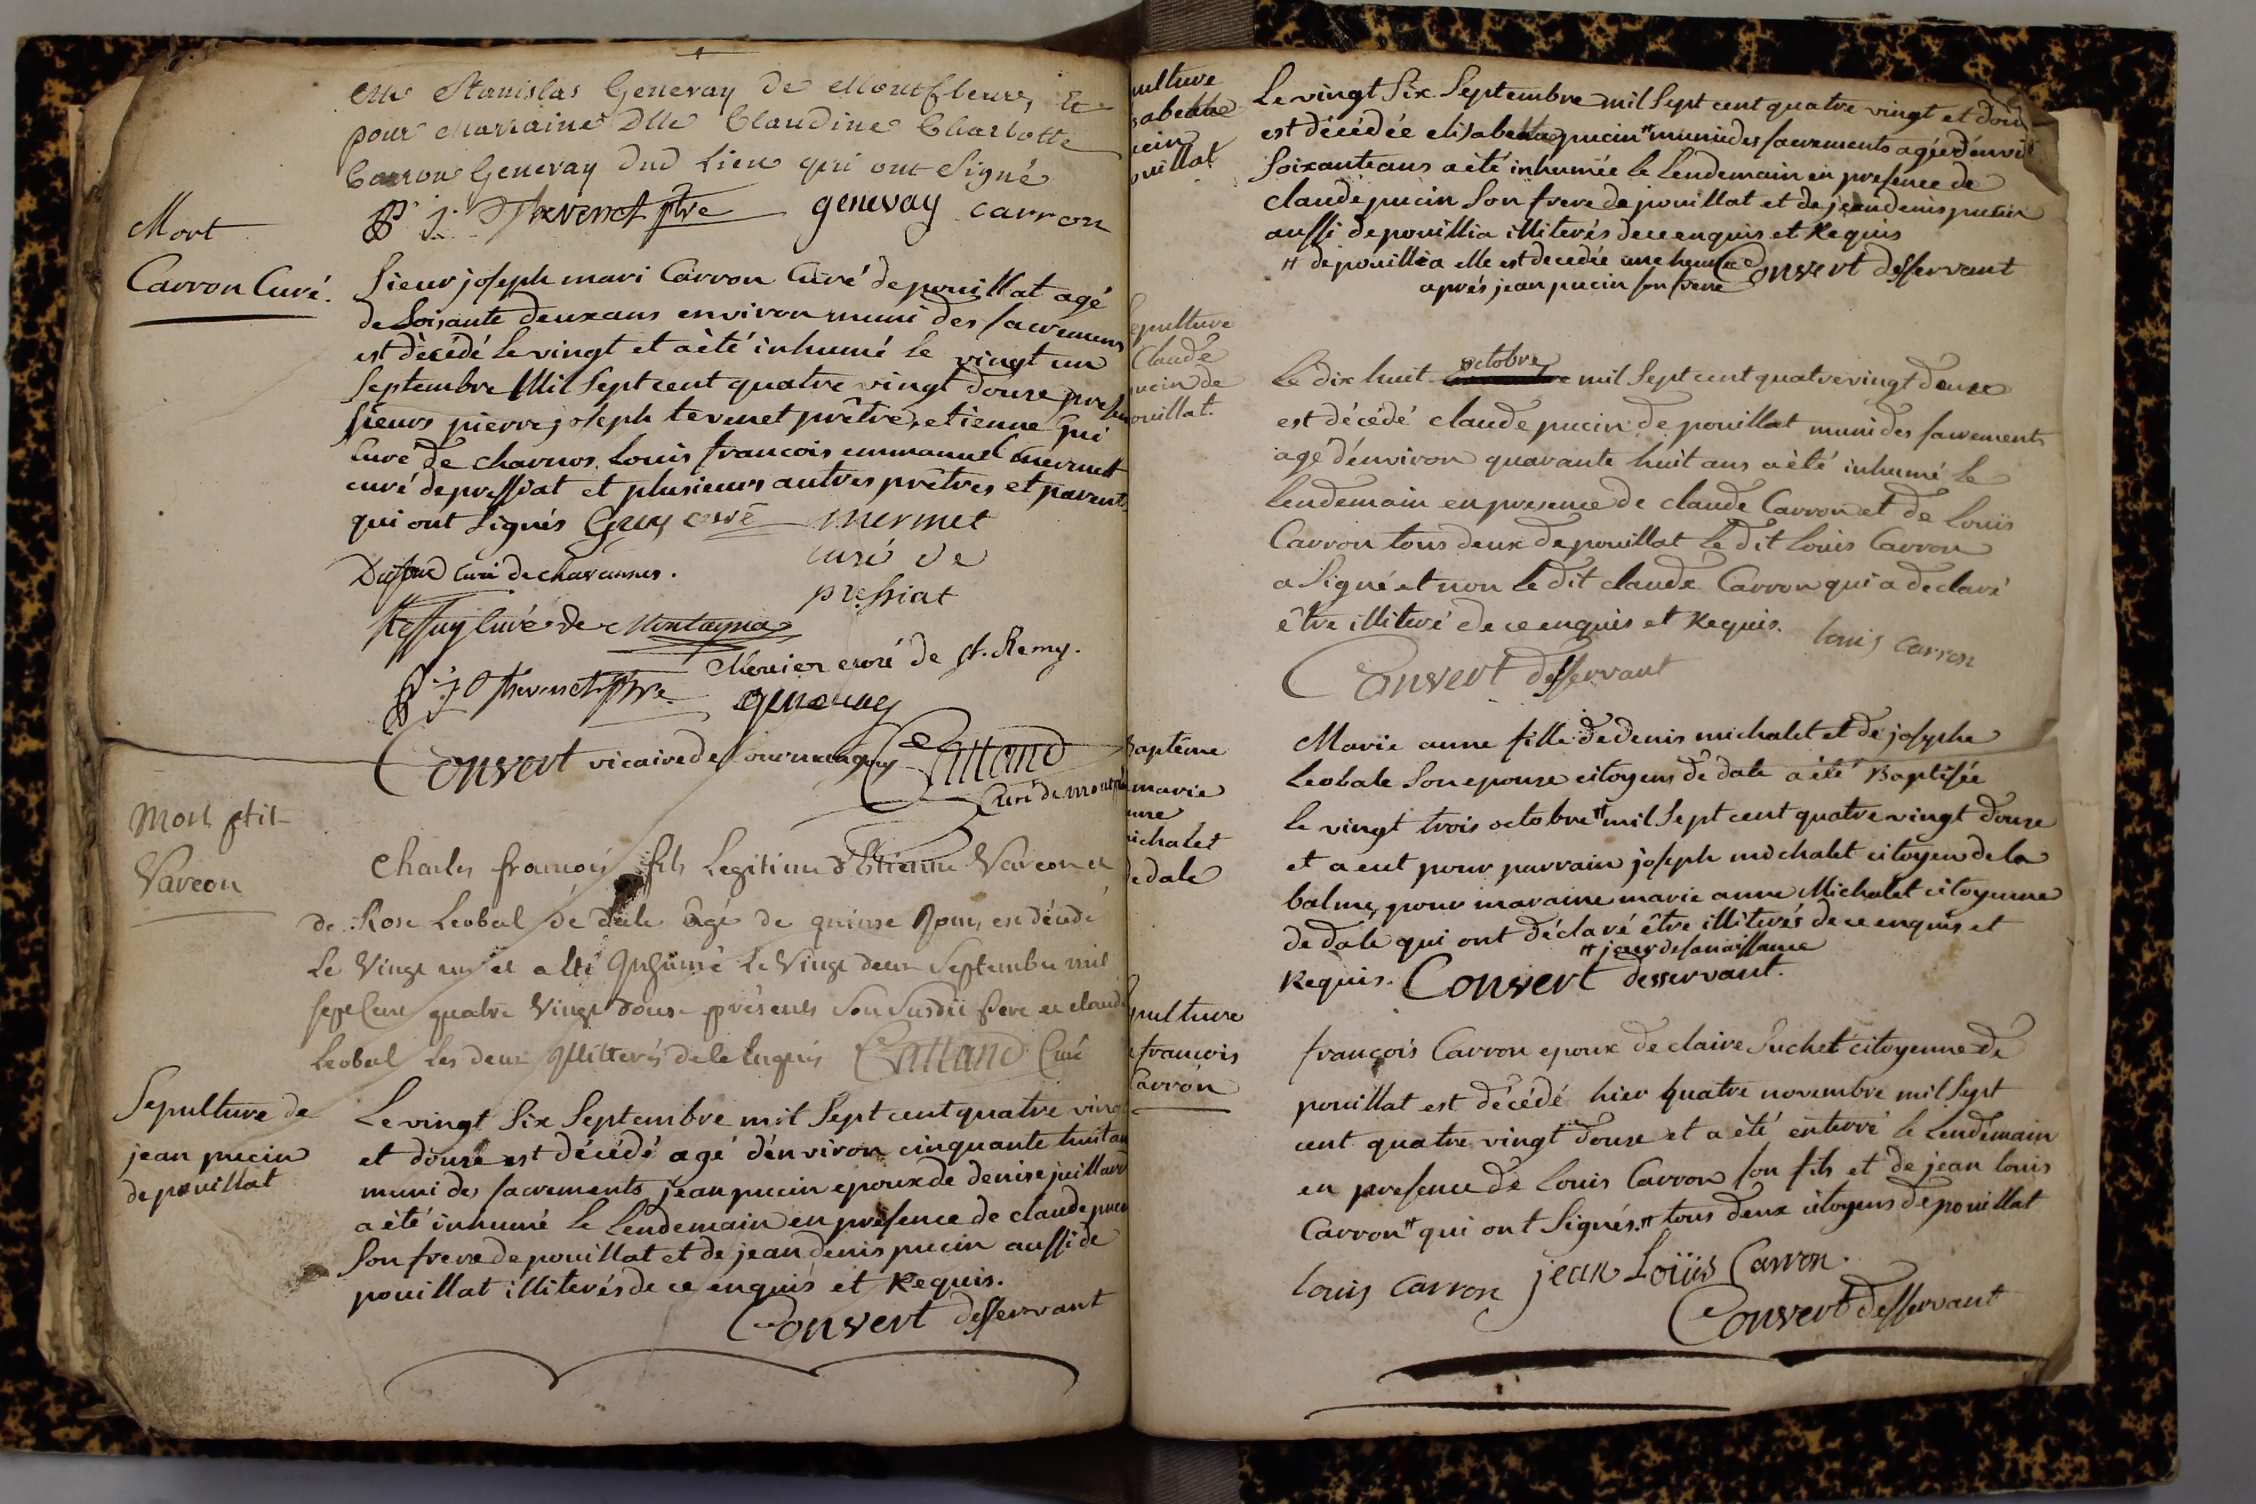 Mre Stanislas Genevay de Montfleur, Et
pour Marraine Dlle Claudine Charlotte
Carron Genevay dud Lieu qui ont Signé
P. j. Thevenet ptre genevay carron
Mort
Carron Curé.
Sieur joseph mari Carron Curé de pouillat agé
de Soisante deux ans environ muni des sacremens
est décédé le vingt et a été inhumé le vingt un
Septembre Mil Sept cent quatre vingt douze
sieurs pierre joseph tevenet prêtre, etienne Gui
Curé de charnos, Louis francois emmanuel mermet
curé de pressiat et plusieurs autres prêtres et parents
qui ont Signés Guy curé mermet
curé de
pressiat
Curé de chavannes.
Curé de Montagna
Monier curé de st. Remy.
P. j. Thevenet ptre genevay
Convert vicaire de
Mort ptit
Vareon
Charles francois fils Legitime d'Etienne Vareon et
de Rose Leobal de dale âgé de quinse Jours est décedé
Le Vingt un et a Eté Inhumé Le Vingt deux Septembre mil
sept Cent quatre Vingt douse présents Son Susdit pere et claude
Leobal Les deux Illitterés de ce Enquis Curé
Sepulture de
jean pucin
de pouillat
Le vingt Six Septembre mil Sept cent quatre vingt
et douse est décédé agé d'environ cinquante huit ans
muni des sacrements jean pucin epoux de denise juillard
a été inhumé le Lendemain en presence de claude pucin
Son frere de pouillat et de jean denis pucin aussi de
pouillat illiterés de ce enquis et Requis.
Convert desservant
Le vingt Six Septembre mil Sept cent quatre vingt et
est décédée elisabethe pucin # munie des sacrements agée d'
Soixante ans a été inhumée le Lendemain en presence de
claude pucin Son frere de pouillat et de jean denis pucin
aussi de pouillia illiterés de ce enquis et Requis
# de pouillia elle est decedée une heure Convert desservant
aprés jean pucin son frere
sepulture
Claude
pucin de
pouillat.
octobre
Le dix huit mil Sept cent quatre vingt douse
est décédé claude pucin de pouillat muni des sacrements
agé d'environ quarante huit ans a été inhumé le
Lendemain en presence de claude Carron et de Louis
Carron tous deux de pouillat le dit Louis Carron
a Signé et non le dit claude Carron qui a declaré
être illiteré de ce enquis et Requis. louis carron
Convert desservant
Bapteme
marie
anne
michalet
de dale
Marie anne fille de denis michalet et de josephe
Leobale Son epouse citoyens de dale a été Baptisée
le vingt trois octobre # mil Sept cent quatre vingt douse
et a eut pour parrain joseph michalet citoyen de la
balme, pour maraine marie anne Michalet citoyenne
de dale qui ont déclaré être illiterés de ce enquis et
# jour de sa naissance
Requis. Convert desservant.
sepulture
de francois
Carron
françois Carron epoux de claire Suchet citoyenne de
pouillat est décédé hier quatre novembre mil Sept
cent quatre vingt douse et a été enterré le Lendemain
en presence de Louis Carron son fils et de jean louis
Carron # qui ont Signés. # tous deux citoyens de pouillat
louis carron jean Loüis Carron.
Convert desservant